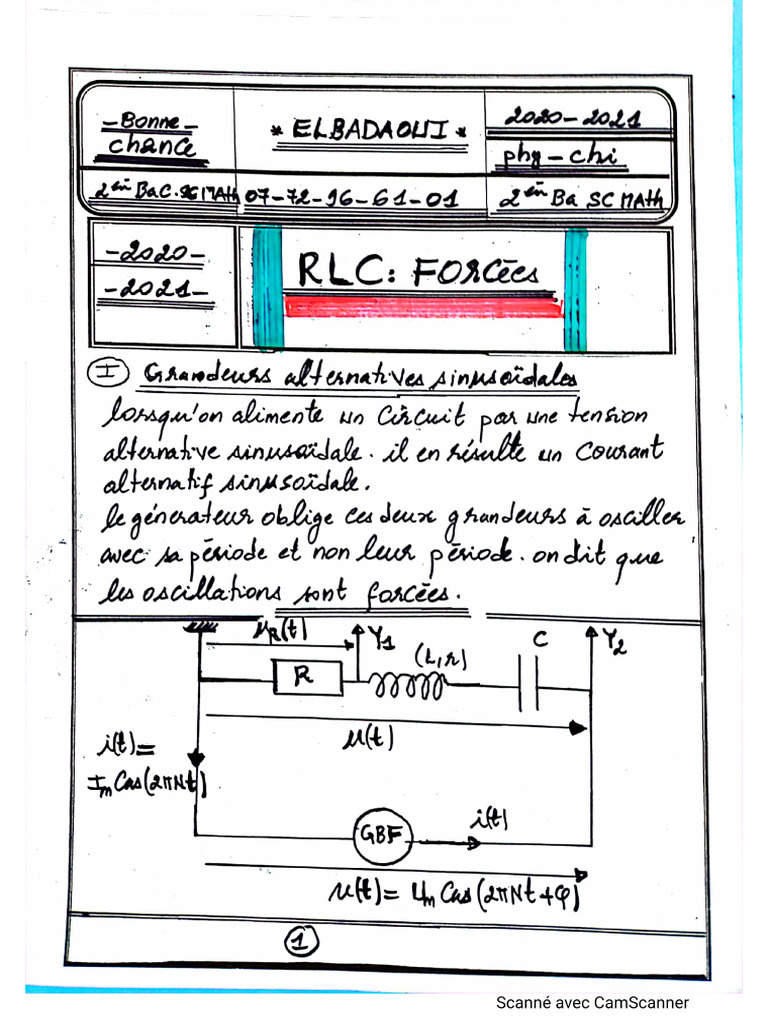 -Bonne-
chance
* ELBADAOUI *
2020-2021
phy-chi
2èm BaC. SC MATH
07-72-96-61-01
2èm Ba SC MATH
-2020-
-2021-
RLC: Forcées
I Grandeurs alternatives sinusoïdales
lorsqu'on alimente un circuit par une tension
alternative sinusoïdale. il en résulte un courant
alternatif sinusoïdale.
le générateur oblige ces deux grandeurs à osciller
avec sa période et non leur période. on dit que
les oscillations sont forcées.
uR(t)
Y1
C
Y2
(L,r)
R
u(t)
i(t)=
Im Cos(2πNt)
GBF
i(t)
u(t)= Um Cos(2πNt+φ)
1
Scanné avec CamScanner